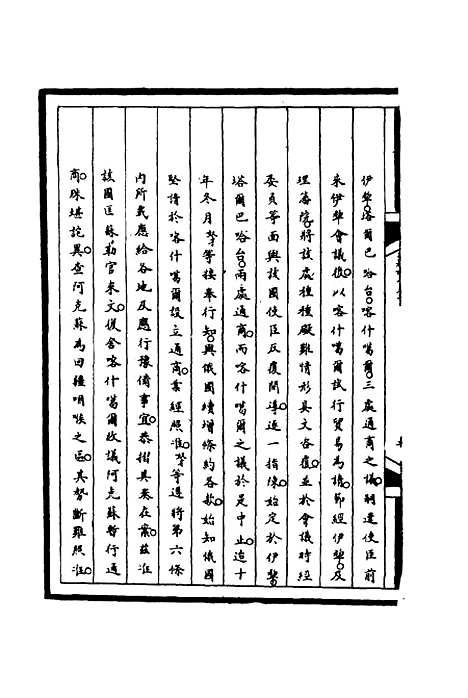 伊犂。塔爾巴哈台。喀什噶爾。三處通商之議。嗣遣使臣前
來伊犂會議。復以喀什噶爾試行貿易為據。節經伊犂。及
理藩院。將該處種種礙難情形具文咨復。並於會議時經
委員等面與該國使臣反覆開導逐一指陳。始定於伊犂
塔爾巴哈台。兩處通商。而喀什噶爾之議於是中止。迨十
年冬月等接奉行知。與俄國續增條約各款。始知俄國
堅請於喀什噶爾設立通商業經照准。等遵將第六條
內所載應給各地及應行豫備事宜。恭摺具奏在案。茲准
該國匡蘇勒官來文。復舍喀什噶爾改議阿克蘇暫行通
商。殊堪詫異。查阿克蘇為回疆咽喉之區。其勢斷難照准。